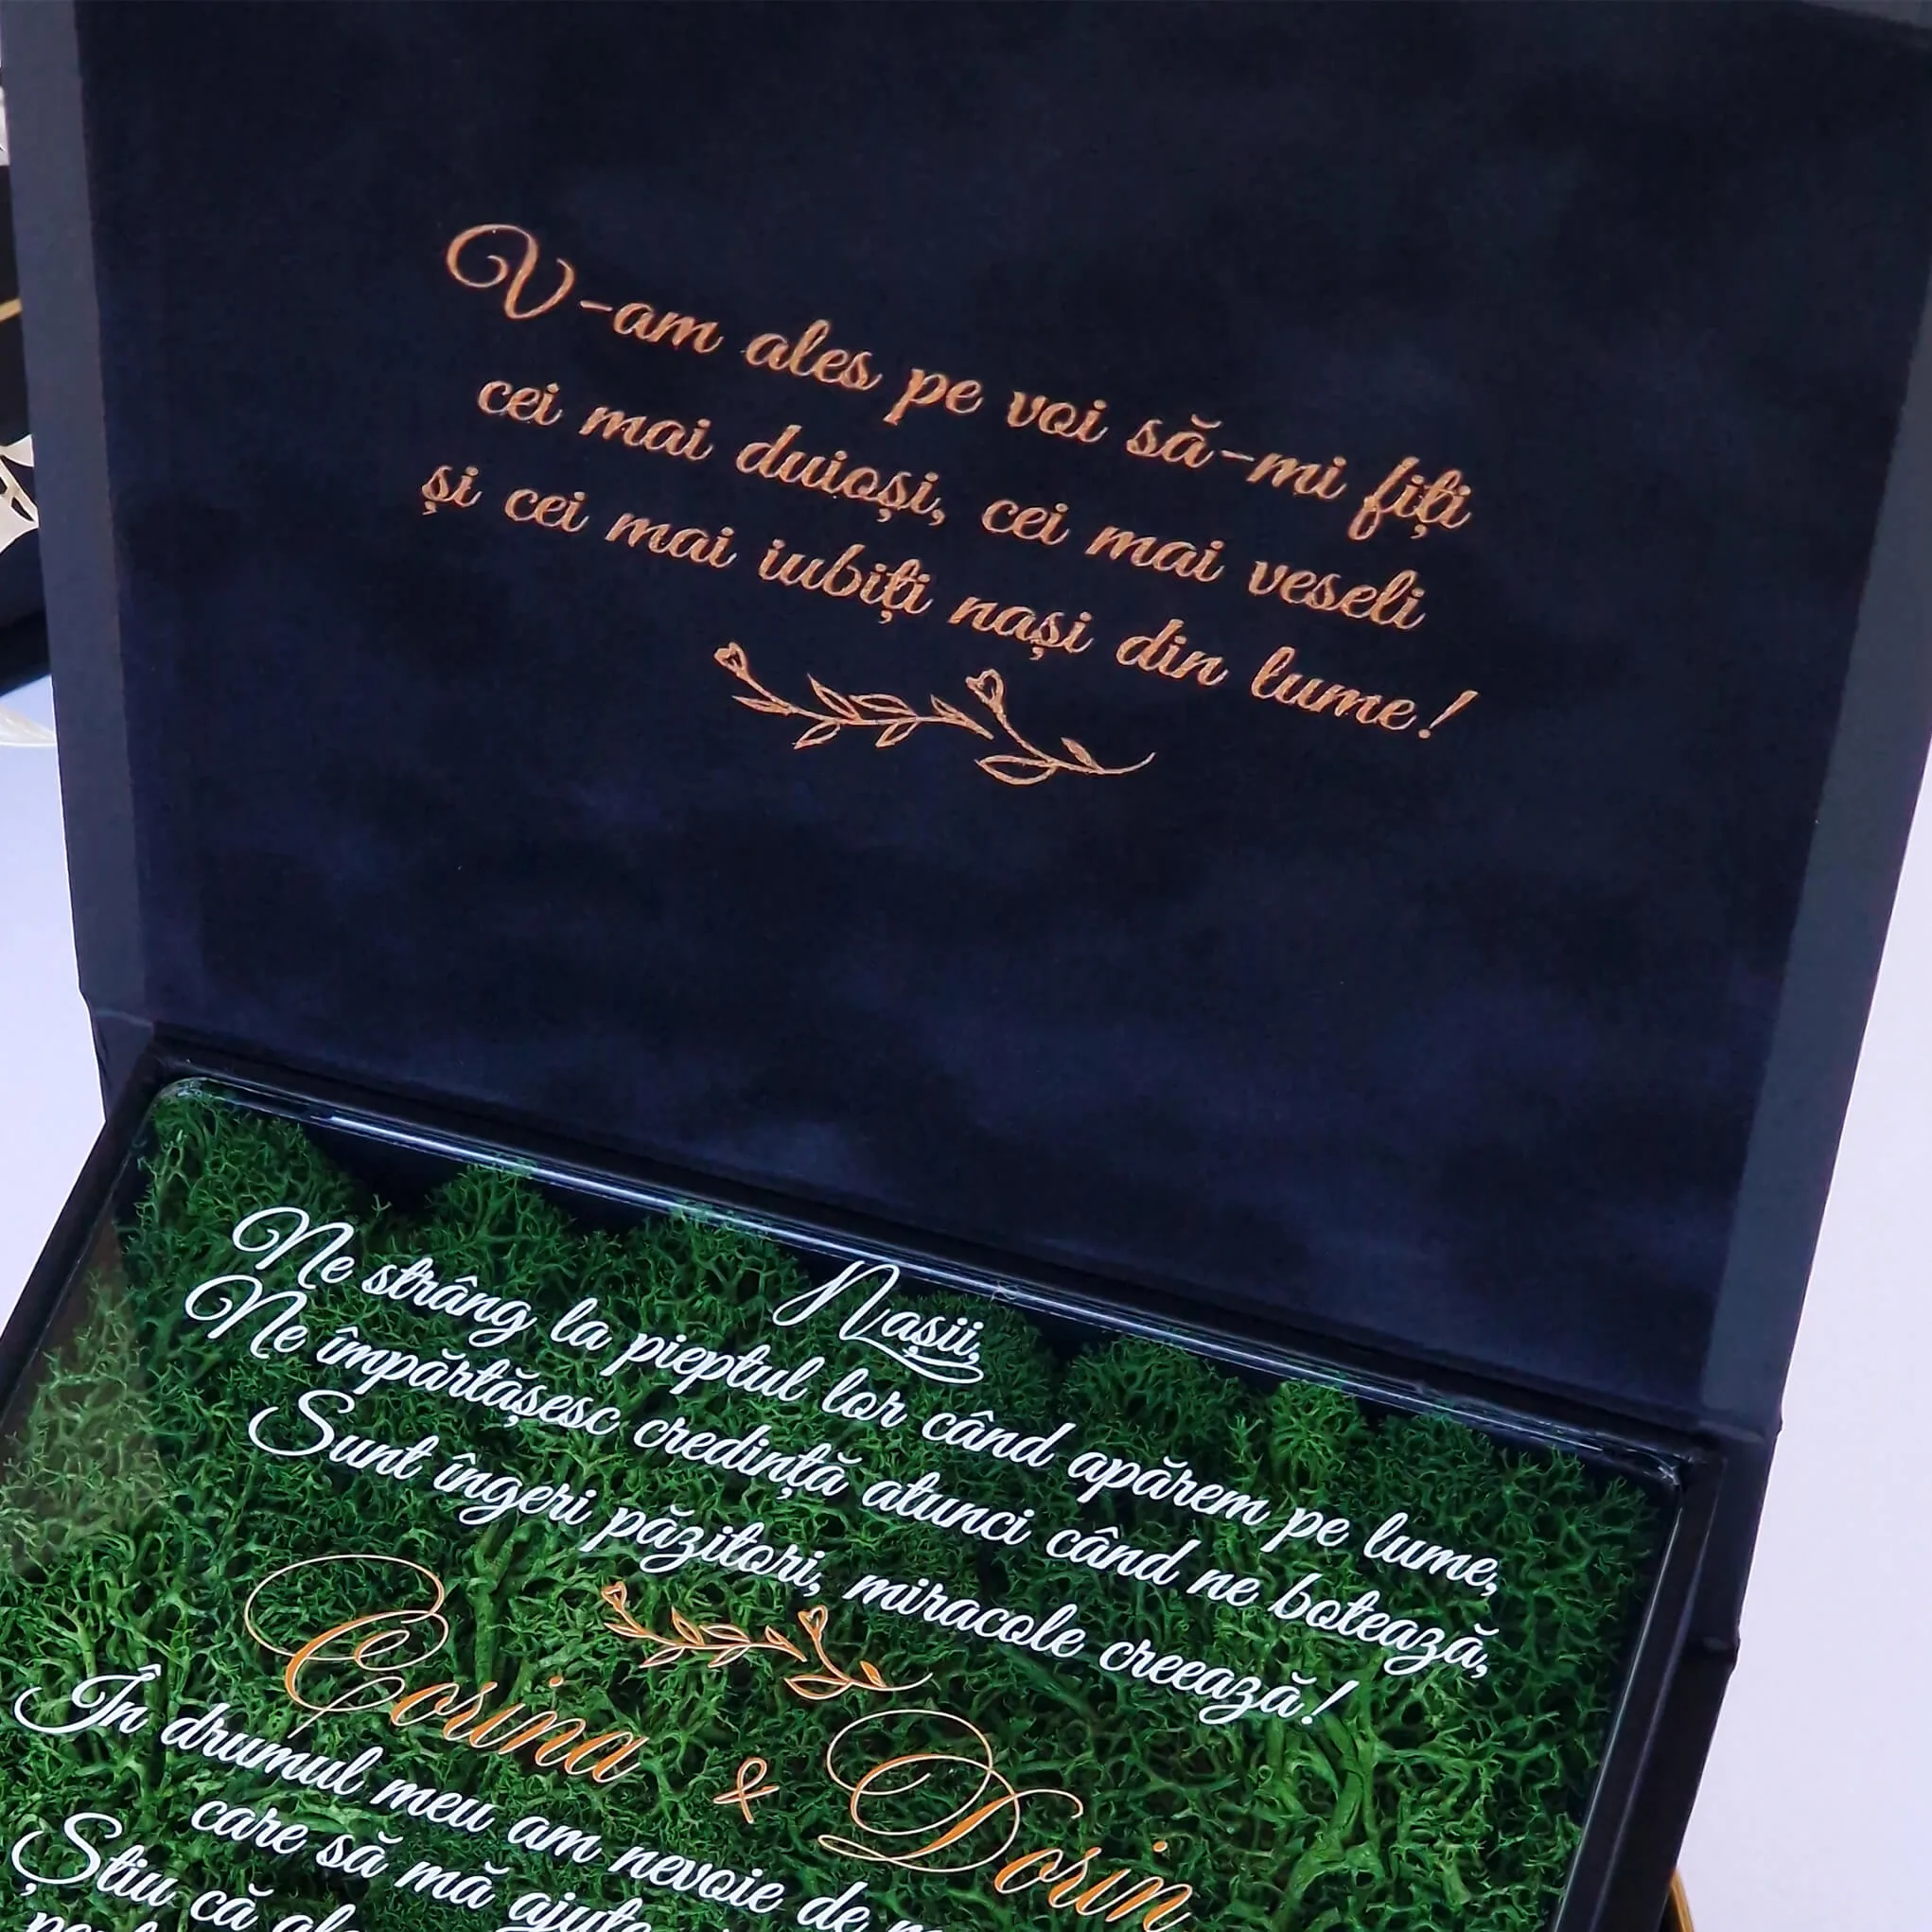 V-am ales pe voi să-mi fiți
cei mai duioși, cei mai veseli
și cei mai iubiți nași din lume!
Nașii,
Ne strâng la pieptul lor când apărem pe lume,
Ne împărtășesc credință atunci când ne botează,
Sunt îngeri păzitori, miracole creează!
Corina & Dorin
În drumul meu am nevoie de
care să mă
Știu că